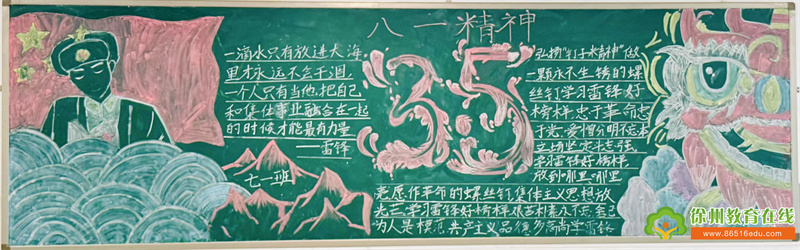 八一精神
一滴水只有放进大海
里才永远不会干涸
一个人只有当他把自己
和集体事业融合在一起
的时候才能最有力量
——雷锋
七一班
3.5
弘扬“钉子精神”做
一颗永不生锈的螺
丝钉学习雷锋好
榜样忠于革命忠
于党爱憎分明不忘本
立场坚定斗志强
学习雷锋好榜样
放到哪里哪里
愿作革命的螺丝钉集体主义思想放
光学习雷锋好榜样
为人是模范共产主义品德多高尚学雷锋
徐州教育在线
www.86516edu.com